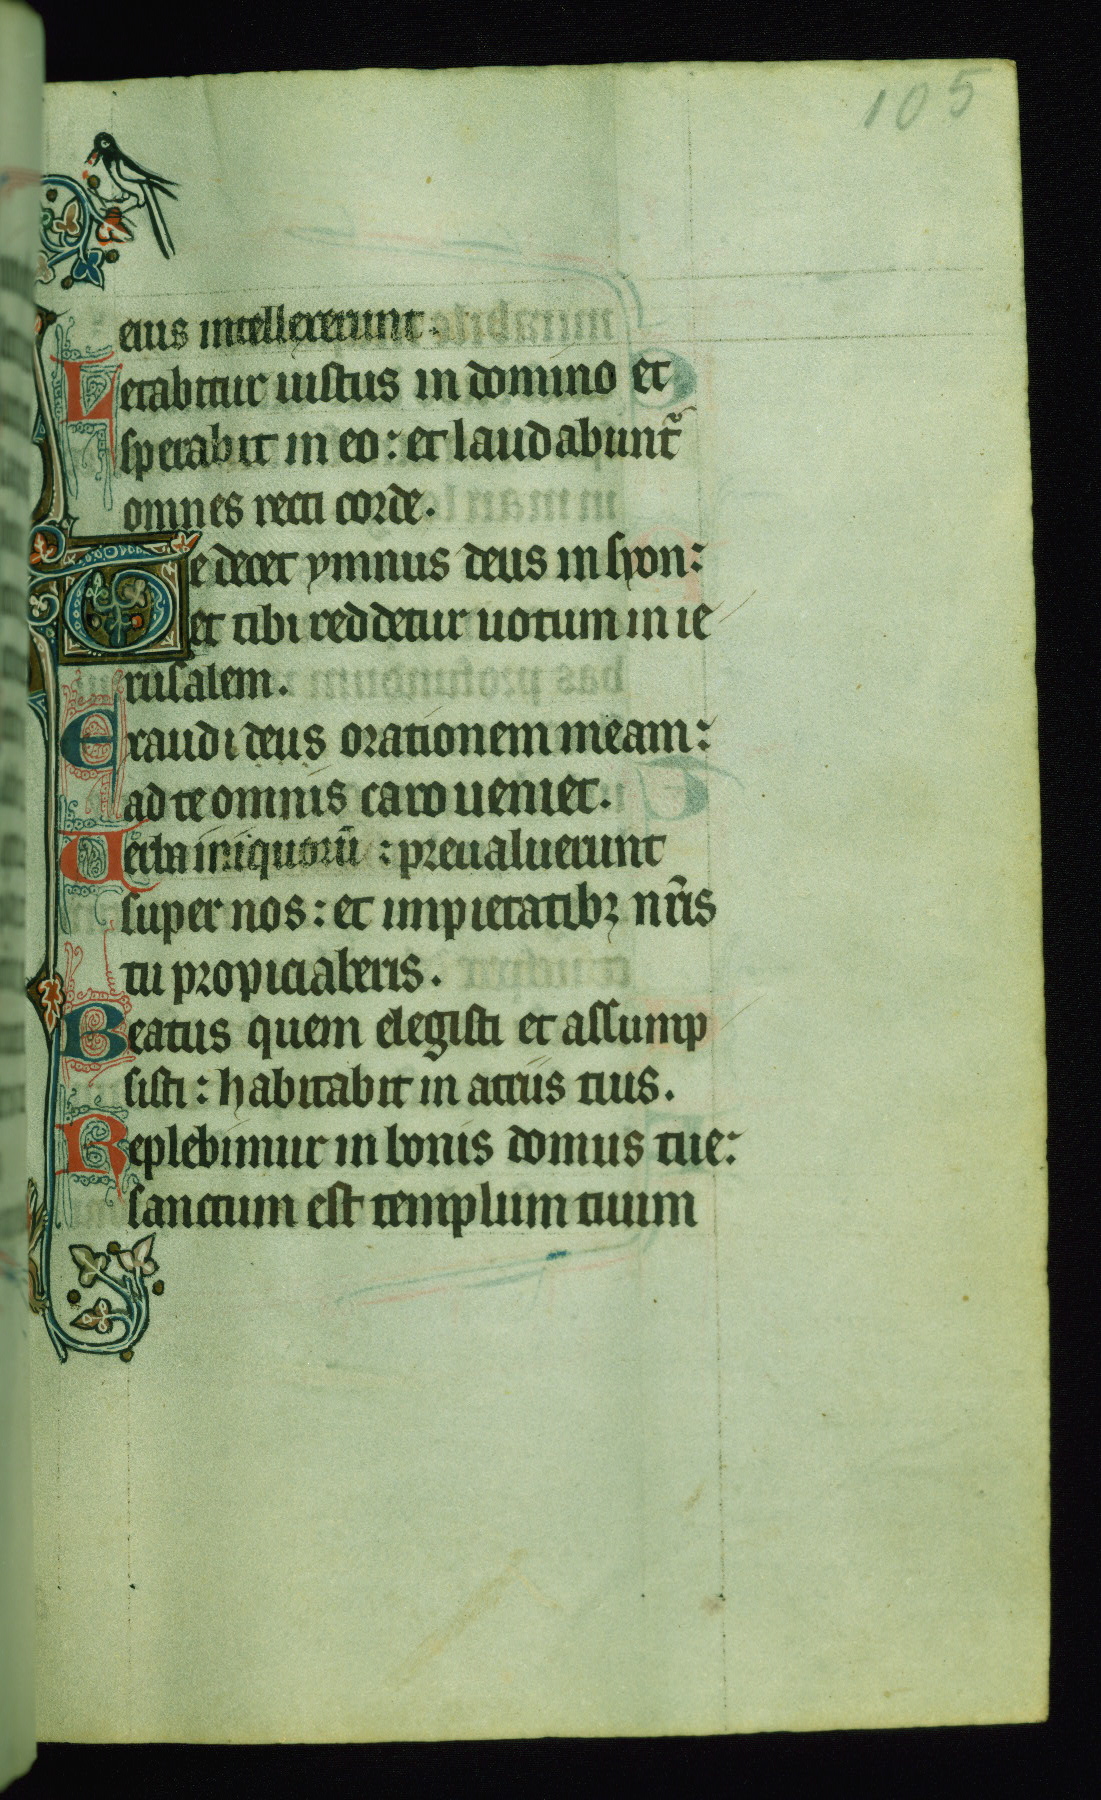 105
eius intellexerunt.
Letabitur iustus in domino et
sperabit in eo: et laudabunt᷑
omnes recti corde.
Te decet ymnus deus in syon:
et tibi reddetur uotum in ie
rusalem.
Exaudi deus orationem meam:
ad te omnis caro ueniet.
Uerba iniquorū: preualuerunt
super nos: et impietatibꝫ nr̄is
tu propiciaberis.
Beatus quem elegisti et assump
sisti: habitabit in atriis tuis.
Replebimur in bonis domus tue:
sanctum est templum tuum